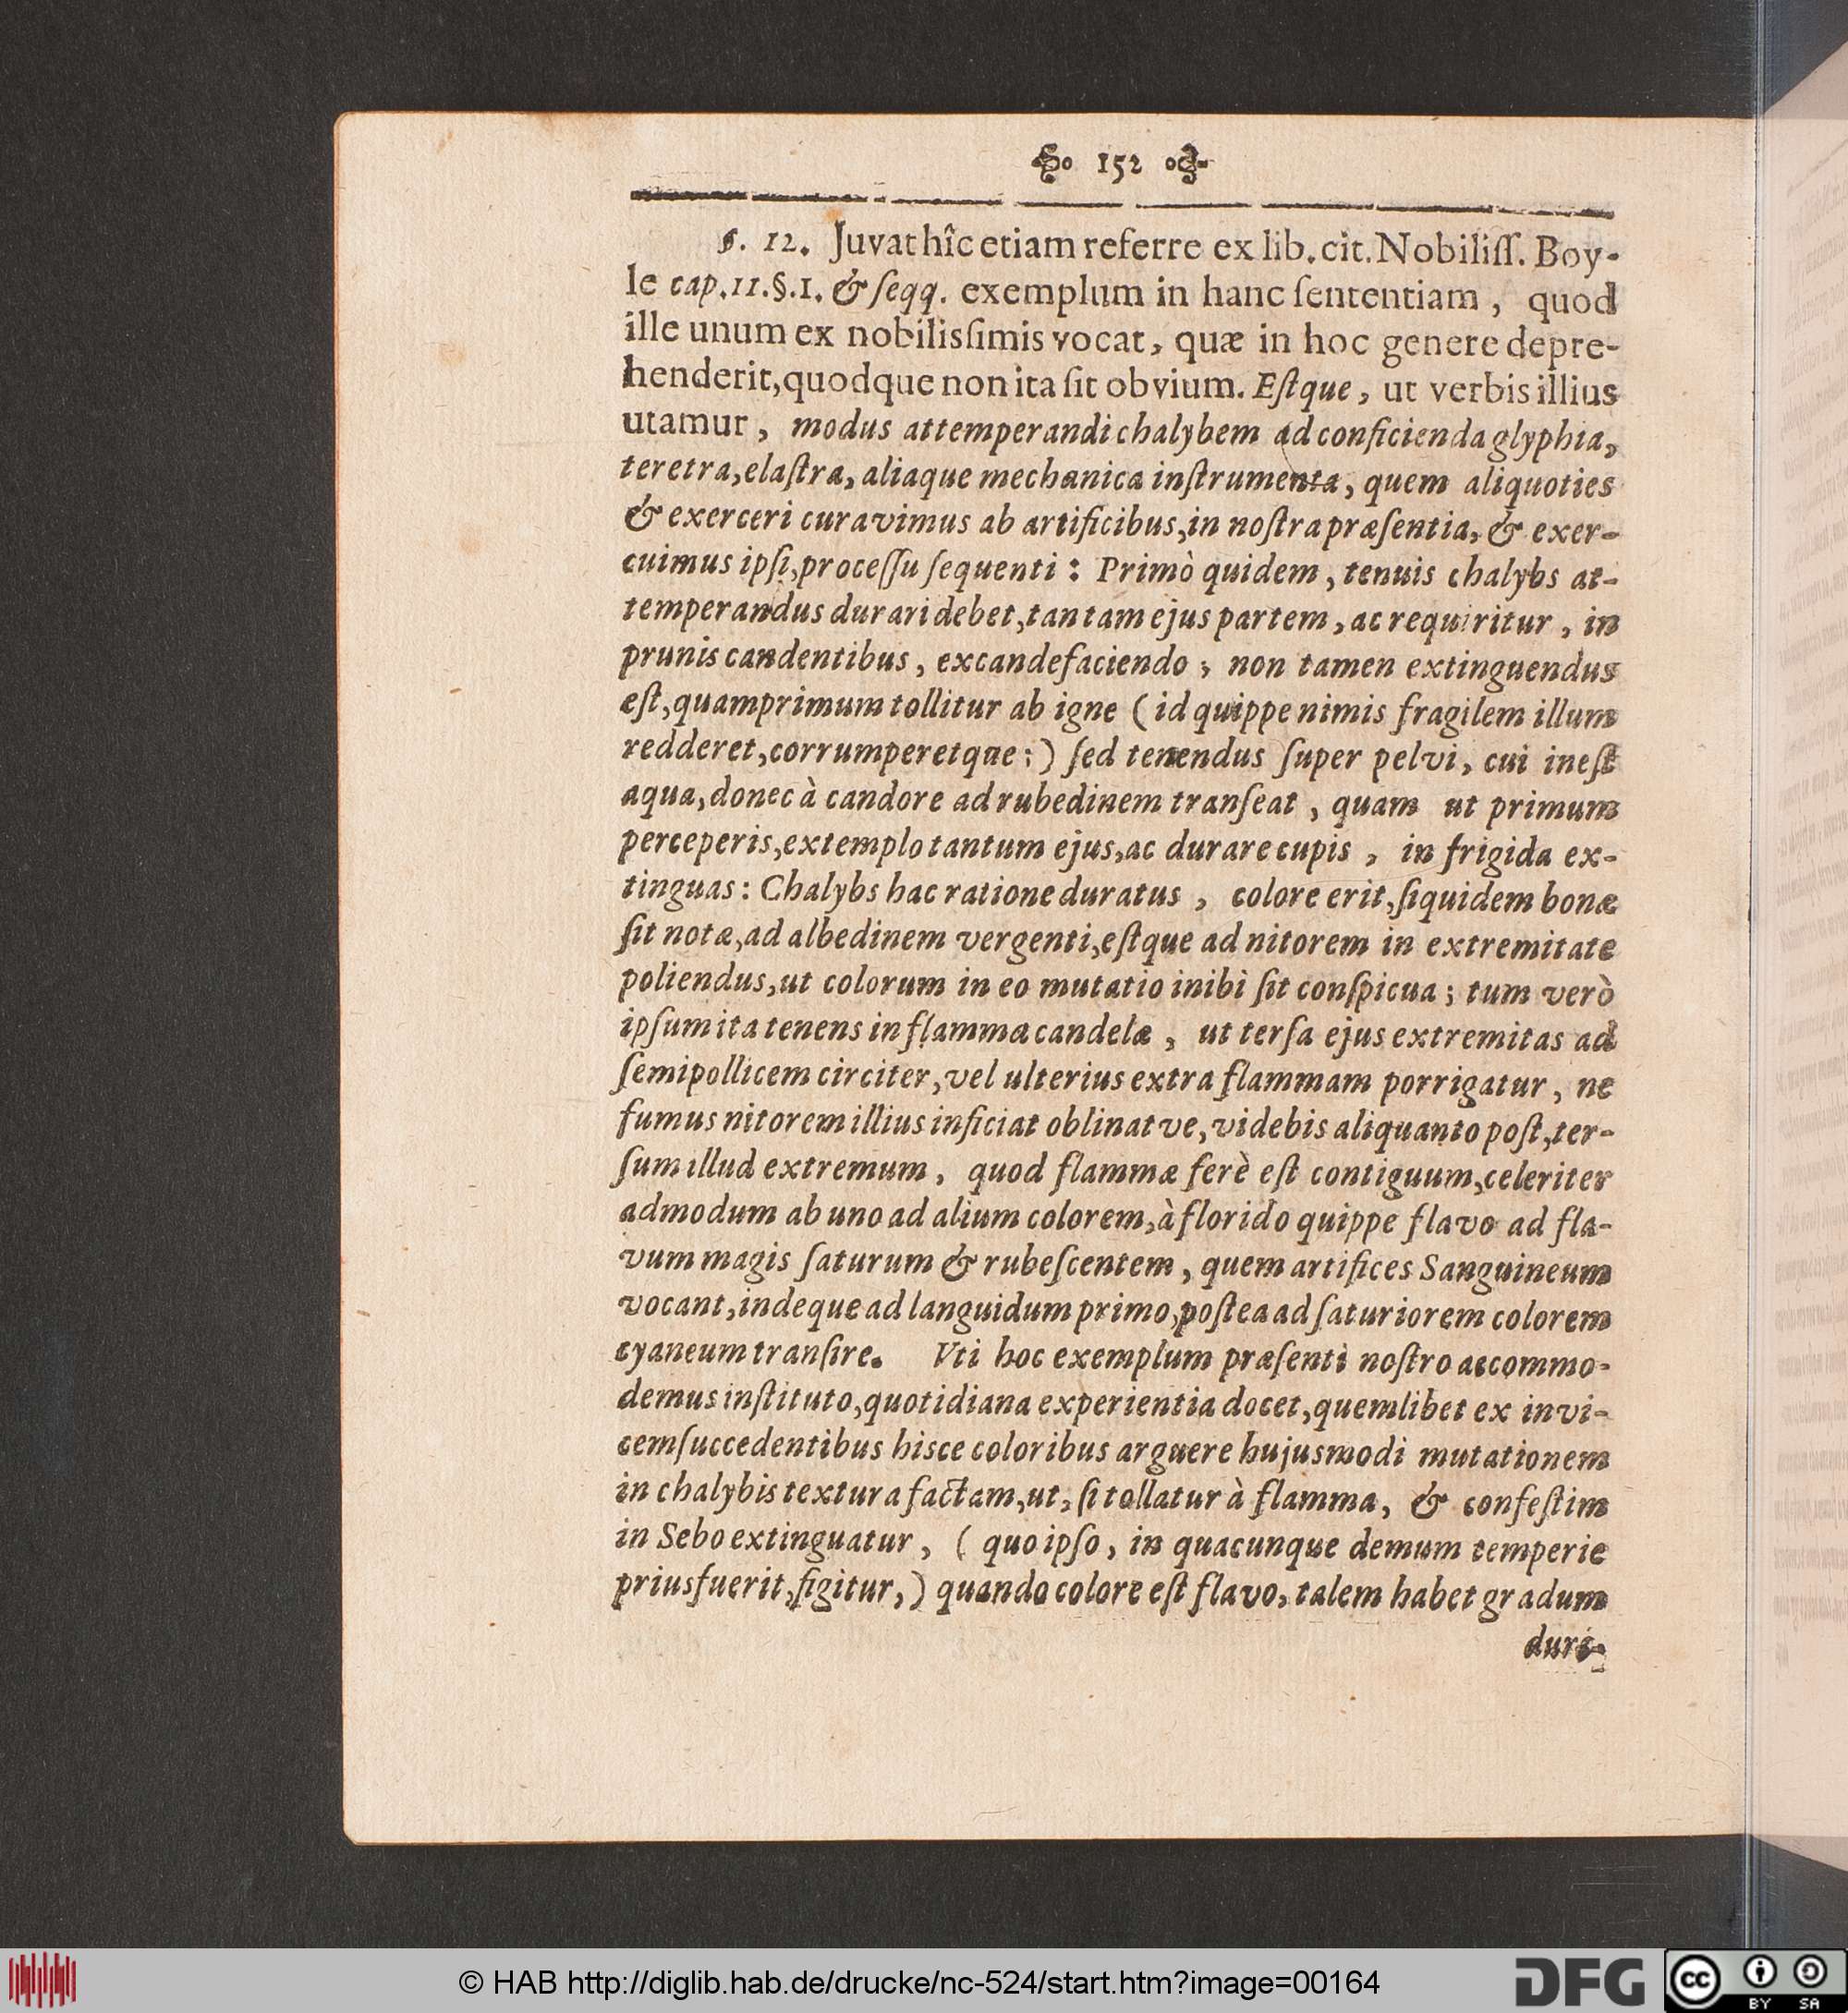 152
§. 12. Juvat hîc etiam referre ex lib. cit. Nobiliſſ. Boy-
le cap. 11. §. 1. & ſeqq. exemplum in hanc ſententiam, quod
ille unum ex nobilisſimis vocat, quæ in hoc genere depre-
henderit, quodque non ita ſit obvium. Eſtque, ut verbis illius
utamur, modus attemperandi chalybem ad conficienda glyphia,
teretra, elaſtra, aliaque mechanica inſtrumenta, quem aliquoties
& exerceri curavimus ab artificibus, in noſtra præſentia, & exer-
cuimus ipſi, proceſſu ſequenti: Primò quidem, tenuis chalybs at-
temperandus durari debet, tantam ejus partem, ac requiritur, in
prunis candentibus, excandefaciendo; non tamen extinguendus
eſt, quamprimum tollitur ab igne (id quippe nimis fragilem illum
redderet, corrumperetque:) ſed tenendus ſuper pelvi, cui ineſt
aqua, donec à candore ad rubedinem tranſeat, quam ut primum
perceperis, extemplo tantum ejus, ac durare cupis, in frigida ex-
tinguas: Chalybs hac ratione duratus, colore erit, ſiquidem bonæ
ſit notæ, ad albedinem vergenti, eſtque ad nitorem in extremitate
poliendus, ut colorum in eo mutatio inibi ſit conſpicua; tum verò
ipſum ita tenens in flamma candelæ, ut terſa ejus extremitas ad
ſemipollicem circiter, vel ulterius extra flammam porrigatur, ne
fumus nitorem illius inficiat oblinatve, videbis aliquanto poſt, ter-
ſum illud extremum, quod flammæ ferè eſt contiguum, celeriter
admodum ab uno ad alium colorem, à florido quippe flavo ad fla-
vum magis ſaturum & rubeſcentem, quem artifices Sanguineum
vocant, indeque ad languidum primo, poſtea ad ſaturiorem colorem
cyaneum tranſire. Vti hoc exemplum præſenti noſtro accommo-
demus inſtituto, quotidiana experientia docet, quemlibet ex invi-
cem ſuccedentibus hisce coloribus arguere hujusmodi mutationem
in chalybis textura factam, ut, ſi tollatur à flamma, & confeſtim
in Sebo extinguatur, (quo ipſo, in quacunque demum temperie
prius fuerit, figitur,) quando colore eſt flavo, talem habet gradum
duri-
© HAB http://diglib.hab.de/drucke/nc-524/start.htm?image=00164
DFG
cc BY SA